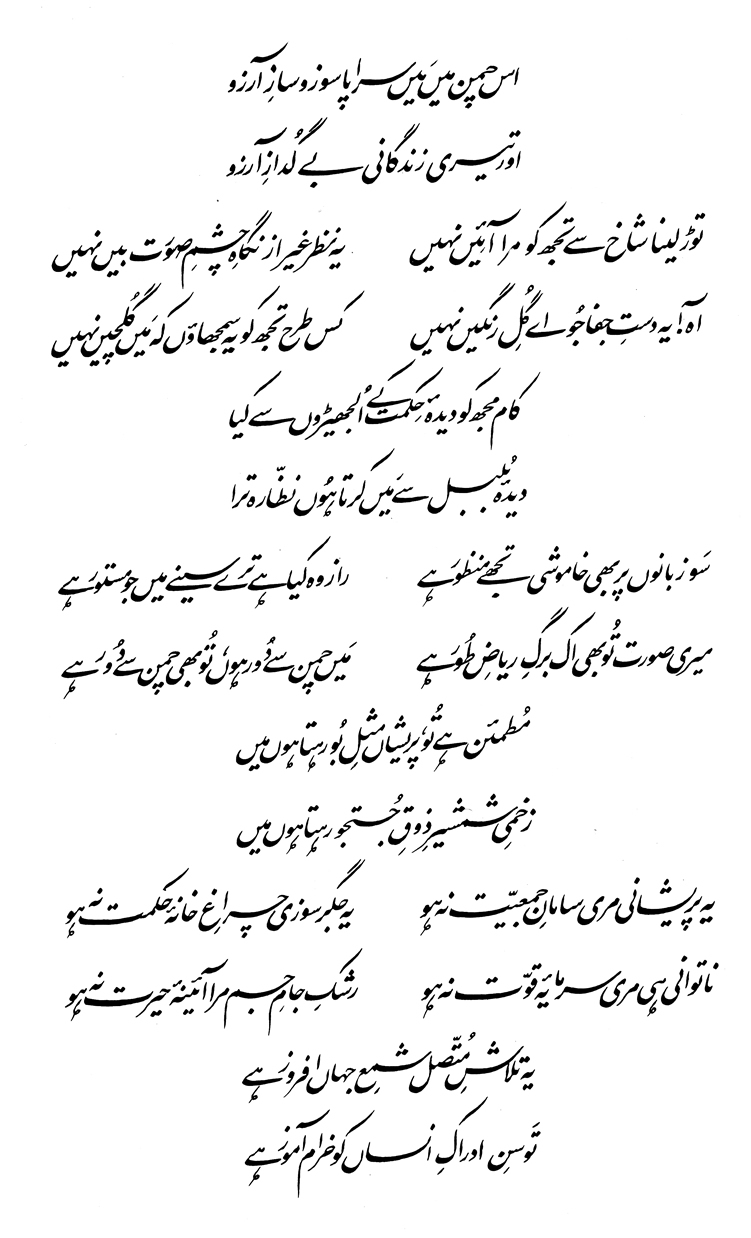 اس چمن میں مَیں سراپا سوز و سازِ آرزو
اور تیری زندگانی بے گُدازِ آرزو
توڑ لینا شاخ سے تجھ کو مرا آئیں نہیں یہ نظر غیر از نگاہِ چشمِ صوُرت بیں نہیں
آہ! یہ دستِ جفا جُو اے گُلِ رنگیں نہیں کس طرح تجھ کو یہ سمجھاؤں کہ مَیں گُلچیں نہیں
کام مجھ کو دیدۂ حِکمت کے اُلجھیڑوں سے کیا
دیدہ بُلبل سے مَیں کرتا ہُوں نظّارہ ترا
سَو زبانوں پر بھی خاموشی تجھے منظوُر ہے راز وہ کیا ہے ترے سینے میں جو مستوُر ہے
میری صورت تُو بھی اک برگِ ریاضِ طُوَر ہے مَیں چمن سے دُور ہوں، تُو بھی چمن سے دُور ہے
مُطمئن ہے تُو، پریشاں مثلِ بُو رہتا ہوں میں
زخمیِ شمشیرِ ذوقِ جُستجو رہتا ہوں میں
یہ پریشانی مری سامانِ جمعیّت نہ ہو یہ جگر سوزی چراغِ خانۂ حکمت نہ ہو
ناتوانی ہی مری سرمائیۂ قوّت نہ ہو رشکِ جامِ جم مرا آئینۂ حیرت نہ ہو
یہ تلاشِ مُتّصل شمعِ جہاں افروز ہے
تَوسنِ ادراکِ انساں کو خرام آموز ہے